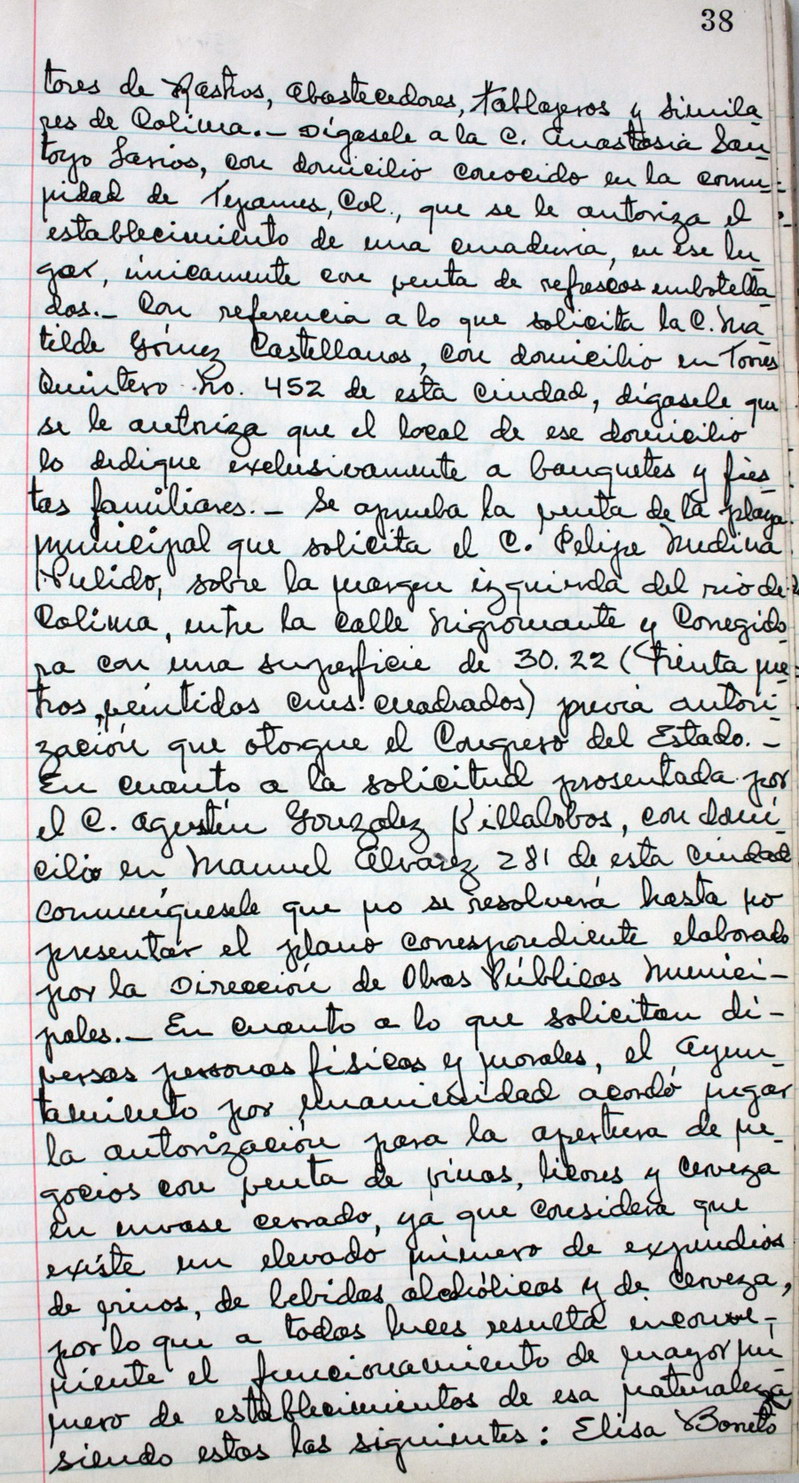 38
tores de Rastros, abastecedores, tablajeros y simila
res de Colima.- Dígasele a la C. Anastasia San-
toyo Larios, con domicilio conocido en la comu-
nidad de Tepames, Col., que se le autoriza el
establecimiento de una enaduria, en ese lu-
gar, únicamente con venta de refrescos embotella
dos.- Con referencia a lo que solicita la C. Ma-
tilde Gómez Castellanos, con domicilio en Torres
Quintero No. 452 de esta ciudad, dígasele que
se le autoriza que el local de ese domicilio
lo dedique exclusivamente a banquetes y fies-
tas familiares.- Se aprueba la venta de la playa
municipal que solicita el C. Felipe Medina
Pulido, sobre la margen izquierda del rio de
Colima, entre la calle Nigromante y Corregido-
ra con una superficie de 30.22 (treinta me-
tros, veintidos cms. cuadrados) previa autori-
zación que otorgue el Congreso del Estado.-
En cuanto a la solicitud presentada por
el C. Agustín González Villalobos, con domi-
cilio en Manuel Álvarez 281 de esta ciudad
comuníquesele que no se resolverá hasta no
presentar el plano correspondiente elaborado
por la Dirección de Obras Públicas Munici-
pales.- En cuanto a lo que solicitan di-
versas personas físicas y morales, el Ayun-
tamiento por unanimidad acordó negar
la autorización para la apertura de ne-
gocios con venta de vinos, licores y cerveza
en envase cerrado, ya que considera que
existe un elevado número de expendios
de vinos, de bebidas alcohólicas y de cerveza,
por lo que a todas luces resulta inconve-
niente el funcionamiento de mayor nú-
mero de establecimientos de esa naturaleza
siendo estas las siguientes: Elisa Bonito